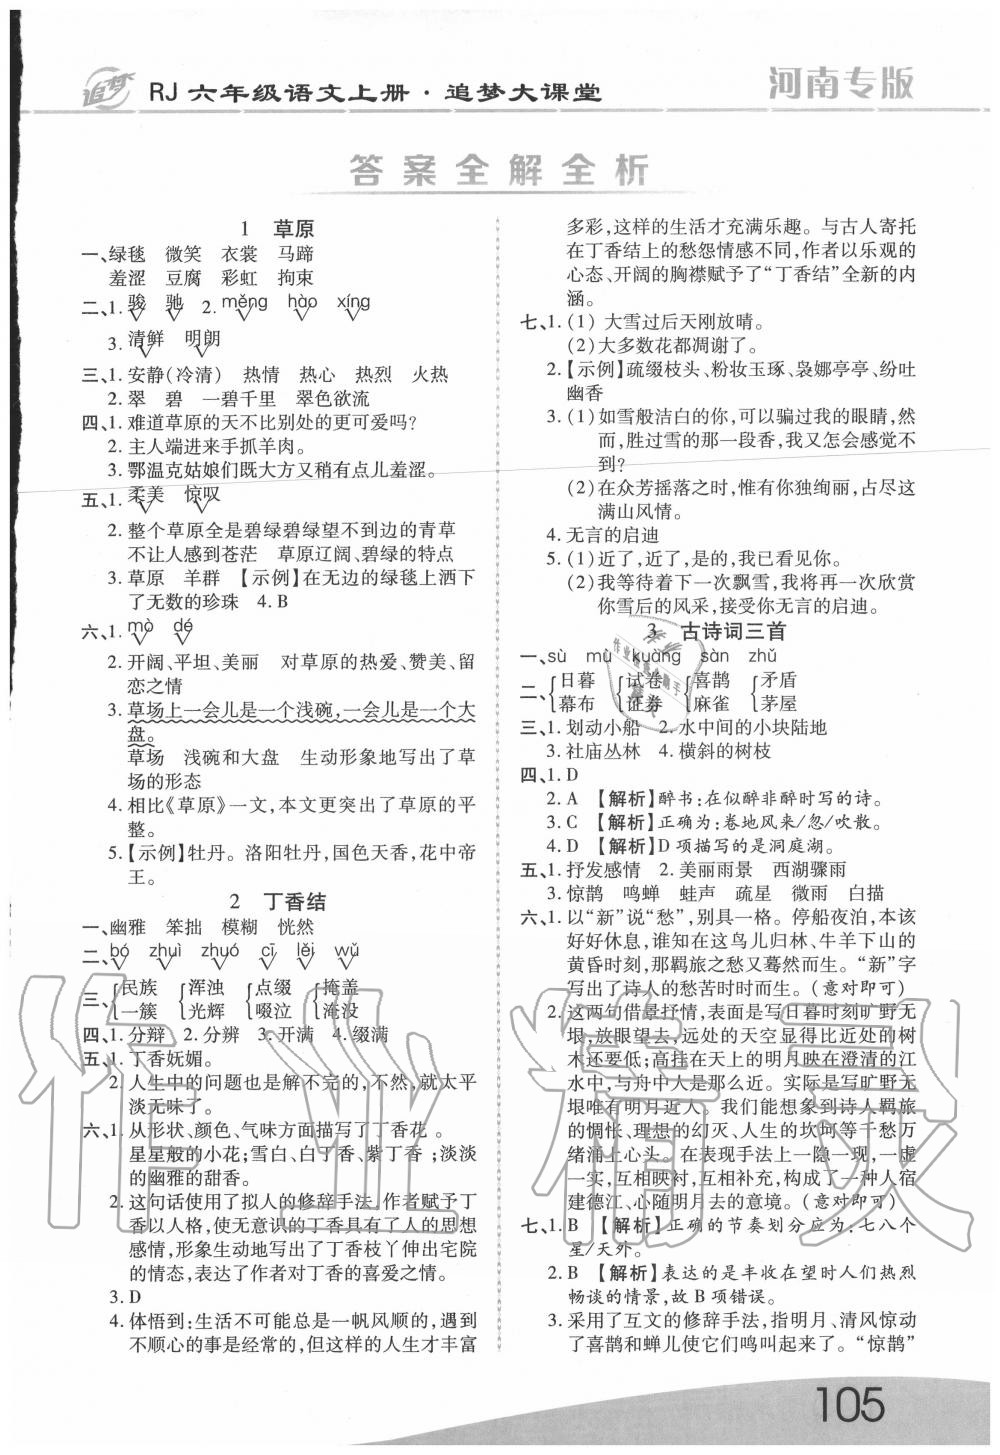 追梦
RJ 六年级语文上册·追梦大课堂
河南专版
答案全解全析
1 草原
一、绿毯 微笑 衣裳 马蹄
羞涩 豆腐 彩虹 拘束
二、1. 骏 驰 2. měng hào xíng
3. 清鲜 明朗
三、1. 安静(冷清) 热情 热心 热烈 火热
2. 翠 碧 一碧千里 翠色欲流
四、1. 难道草原的天不比别处的更可爱吗?
2. 主人端进来手抓羊肉。
3. 鄂温克姑娘们既大方又稍有点儿羞涩。
五、1. 柔美 惊叹
2. 整个草原全是碧绿碧绿望不到边的青草
不让人感到苍茫 草原辽阔、碧绿的特点
3. 草原 羊群 【示例】在无边的绿毯上洒下
了无数的珍珠 4. B
六、1. mò dé
2. 开阔、平坦、美丽 对草原的热爱、赞美、留
恋之情
3. 草场上一会儿是一个浅碗,一会儿是一个大
盘。
草场 浅碗和大盘 生动形象地写出了草
场的形态
4. 相比《草原》一文,本文更突出了草原的平
整。
5.【示例】牡丹。洛阳牡丹,国色天香,花中帝
王。
2 丁香结
一、幽雅 笨拙 模糊 恍然
二、bó zhuì zhuó cī lěi wǔ
三、民族 浑浊 点缀 掩盖
一簇 光辉 啜泣 淹没
四、1. 分辩 2. 分辨 3. 开满 4. 缀满
五、1. 丁香妩媚。
2. 人生中的问题也是解不完的,不然,就太平
淡无味了。
六、1. 从形状、颜色、气味方面描写了丁香花 。
星星般的小花;雪白、白丁香、紫丁香;淡淡
的幽雅的甜香。
2. 这句话使用了拟人的修辞手法,作者赋予丁
香以人格,使无意识的丁香具有了人的思想
感情,形象生动地写出了丁香枝丫伸出宅院
的情态,表达了作者对丁香的喜爱之情。
3. D
4. 体悟到:生活不可能总是一帆风顺的,遇到
不顺心的事是经常的,但这样的人生才丰富
多彩,这样的生活才充满乐趣。与古人寄托
在丁香结上的愁怨情感不同,作者以乐观的
心态、开阔的胸襟赋予了“丁香结”全新的内
涵。
七、1. (1) 大雪过后天刚放晴。
(2) 大多数花都凋谢了。
2.【示例】疏缀枝头、粉妆玉琢、袅娜亭亭、纷吐
幽香
3. (1) 如雪般洁白的你,可以骗过我的眼睛,然
而,胜过雪的那一段香,我又怎会感觉不
到?
(2) 在众芳摇落之时,惟有你独绚丽,占尽这
满山风情。
4. 无言的启迪
5. (1) 近了,近了,是的,我已看见你。
(2) 我等待着下一次飘雪,我将再一次欣赏
你雪后的风采,接受你无言的启迪。
3 古诗词三首
一、sù mù kuàng sàn zhǔ
二、日暮 试卷 喜鹊 矛盾
幕布 证券 麻雀 茅屋
三、1. 划动小船 2. 水中间的小块陆地
3. 社庙丛林 4. 横斜的树枝
四、1. D
2. A 【解析】醉书:在似醉非醉时写的诗。
3. C 【解析】正确为:卷地风来/忽/吹散。
4. D 【解析】D 项描写的是洞庭湖。
五、1. 抒发感情 2. 美丽雨景 西湖骤雨
3. 惊鹊 鸣蝉 蛙声 疏星 微雨 白描
六、1. 以“新”说“愁”,别具一格。停船夜泊,本该
好好休息,谁知在这鸟儿归林、牛羊下山的
黄昏时刻,那羁旅之愁又蓦然而生。“新”字
写出了诗人的愁苦时时而生。(意对即可)
2. 这两句借景抒情,表面是写日暮时刻旷野无
垠,放眼望去,远处的天空显得比近处的树
木还要低;高挂在天上的明月映在澄清的江
水中,与舟中人是那么近。实际是写旷野无
垠唯有明月近人。我们能想象到诗人羁旅
的惆怅、理想的幻灭、人生的坎坷等千愁万
绪涌上心头。在表现手法上一隐一现,一虚
一实,互相映衬,互相补充,构成了一种人宿
建德江、心随明月去的意境。(意对即可)
七、1. B 【解析】正确的节奏划分应为:七八个
星/天外。
2. B 【解析】表达的是丰收在望时人们热烈
畅谈的情景,故 B 项错误。
3. 采用了互文的修辞手法,指明月、清风惊动
了喜鹊和蝉儿使它们鸣叫起来了。“惊鹊”
105
作业精灵